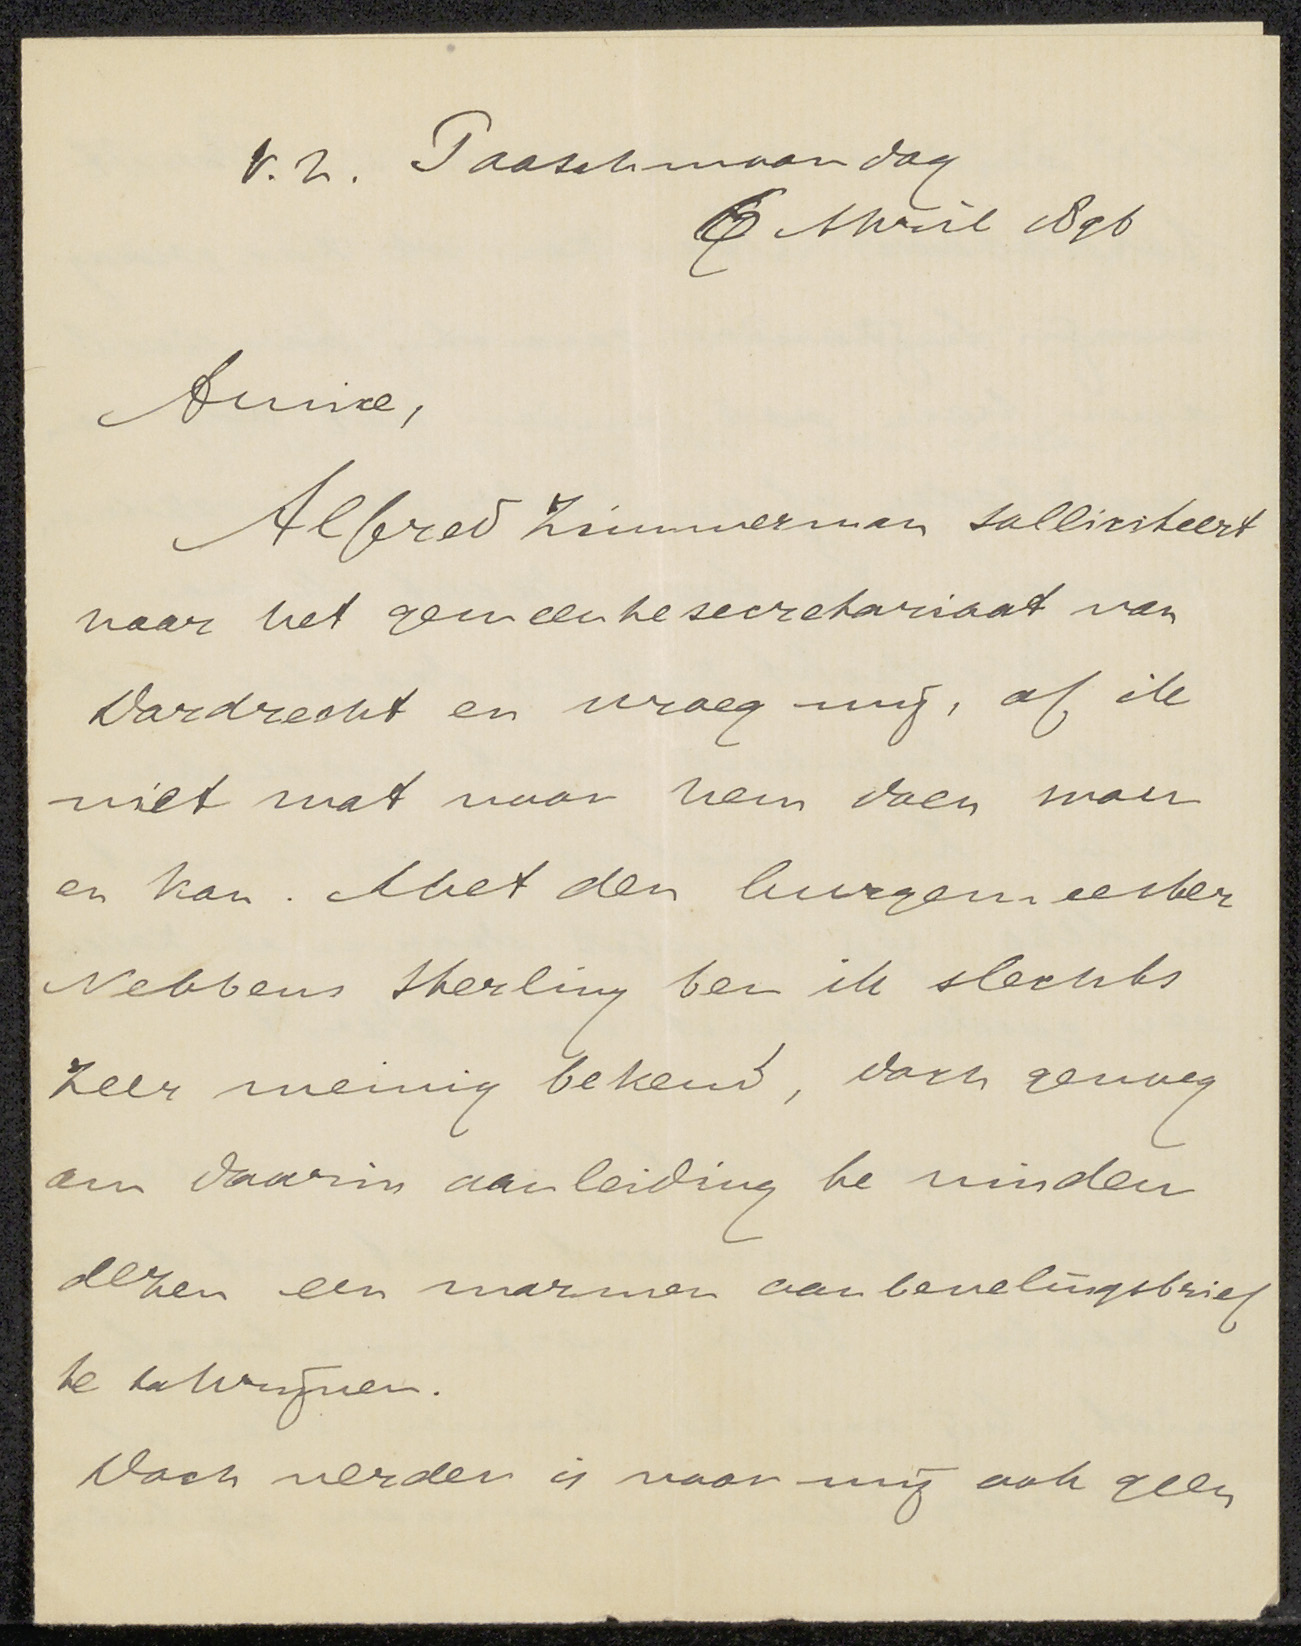 v. h. Paaschmaandag
6 April 1896
Amice,
Alfred Zimmerman solliciteert
naar het gemeentesecretariaat van
Dordrecht en vroeg mij, of ik
niet wat voor hem doen wou
en kon. Met den burgemeester
Nebbens Sterling ben ik slechts
zeer weinig bekend, doch genoeg
om daarin aanleiding te vinden
dezen een warmen aanbevelingsbrief
te schrijven.
Doch verder is voor mij ook geen